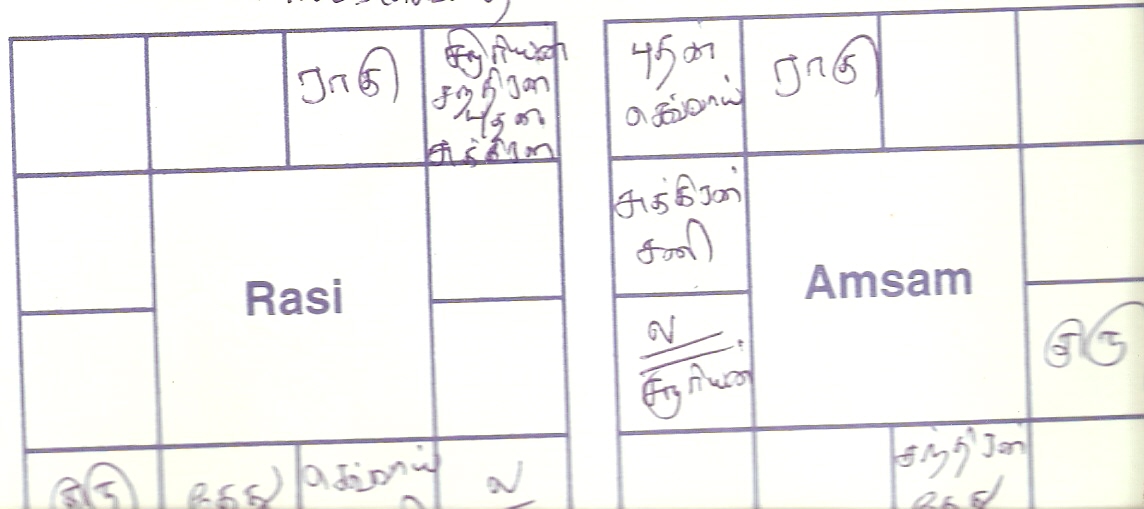 ராகு
சூரியன்
சந்திரன்
புதன்
சுக்கிரன்
Rasi
குரு
கேது
செவ்வாய்
ல
புதன்
செவ்வாய்
ராகு
சுக்கிரன்
சனி
ல
சூரியன்
Amsam
குரு
சந்திரன்
கேது